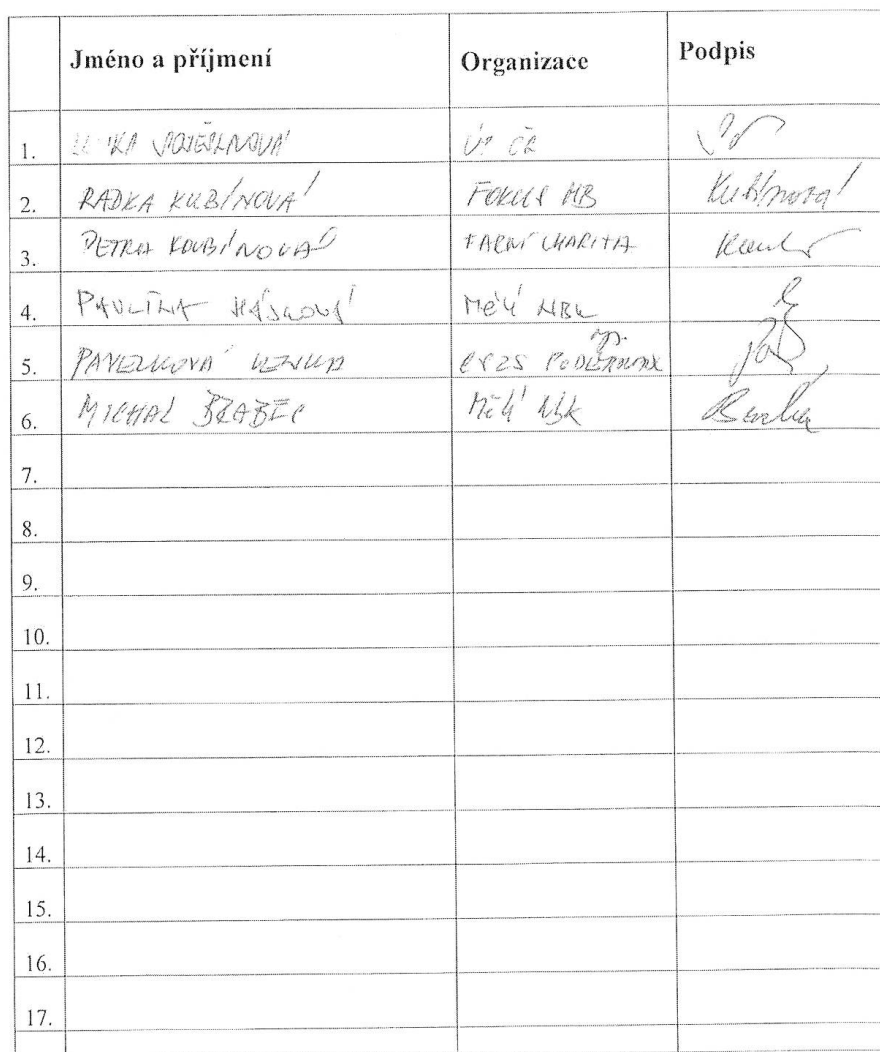 Jméno a příjmení Organizace Podpis
1. ÚP ČR
2. RADKA KUBÍNOVÁ FOKUS MB Kubínová
3. PETRA KOUBÍNOVÁ FARNÍ CHARITA
4. PAVLÍNA MěÚ NBK
5. PAVELKOVÁ LENKA
6. MICHAL BRABEC MěÚ NBK
7.
8.
9.
10.
11.
12.
13.
14.
15.
16.
17.